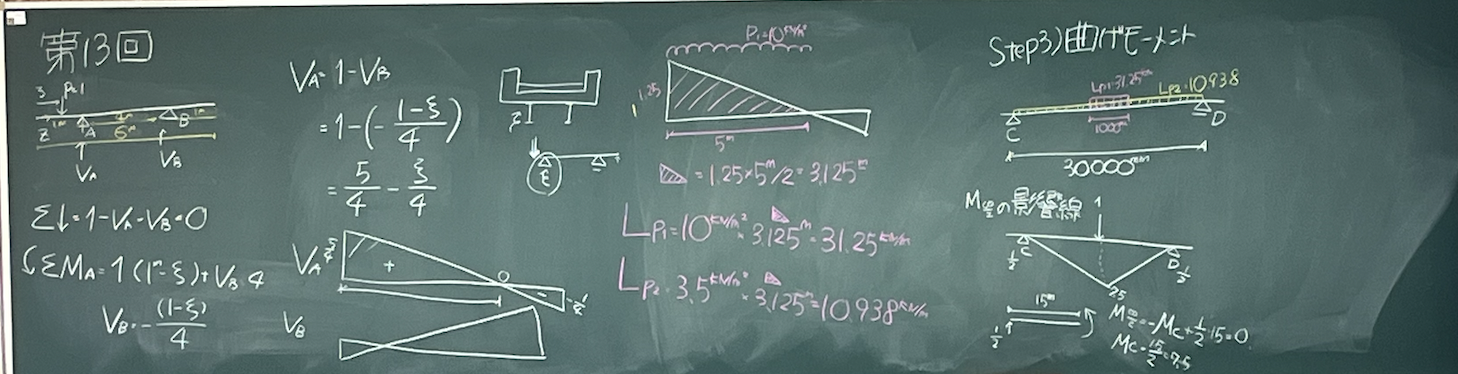 第13回
ξ P=1
Z 1m A 4m B 1m
6m
V_A V_B
Σ↓=1-V_A-V_B=0
ΣM_A=1(1m-ξ)+V_B・4
V_B=-(1-ξ)/4
V_A=1-V_B
=1-(-(1-ξ)/4)
=5/4-ξ/4
V_A 5/4 + 0 - -1/2
V_B
ξ
P1=10kN/m²
1.25
5m
=1.25×5m/2=3.125m
L_P1=10kN/m²×3.125m=31.25kN/m
L_P2=3.5kN/m²×3.125m=10.938kN/m
Step3)曲げモーメント
L_P1=31.25kN L_P2=10.938
C D
1000m
30000mm
の影響線 1
1/2 C D 1/2
15m
1/2
-M_C+1/2・15=0
M_C=15/2=7.5